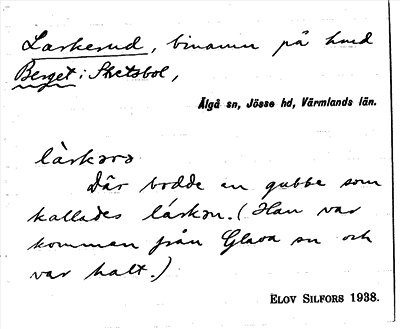 Larkerud, binamn på hmd
Berget i Sketsbol,
Älgå sn, Jösse hd, Värmlands län.
Där bodde en gubbe som
kallades (Han var
kommen från Glava sn och
var halt.)
ELOV SILFORS 1938.